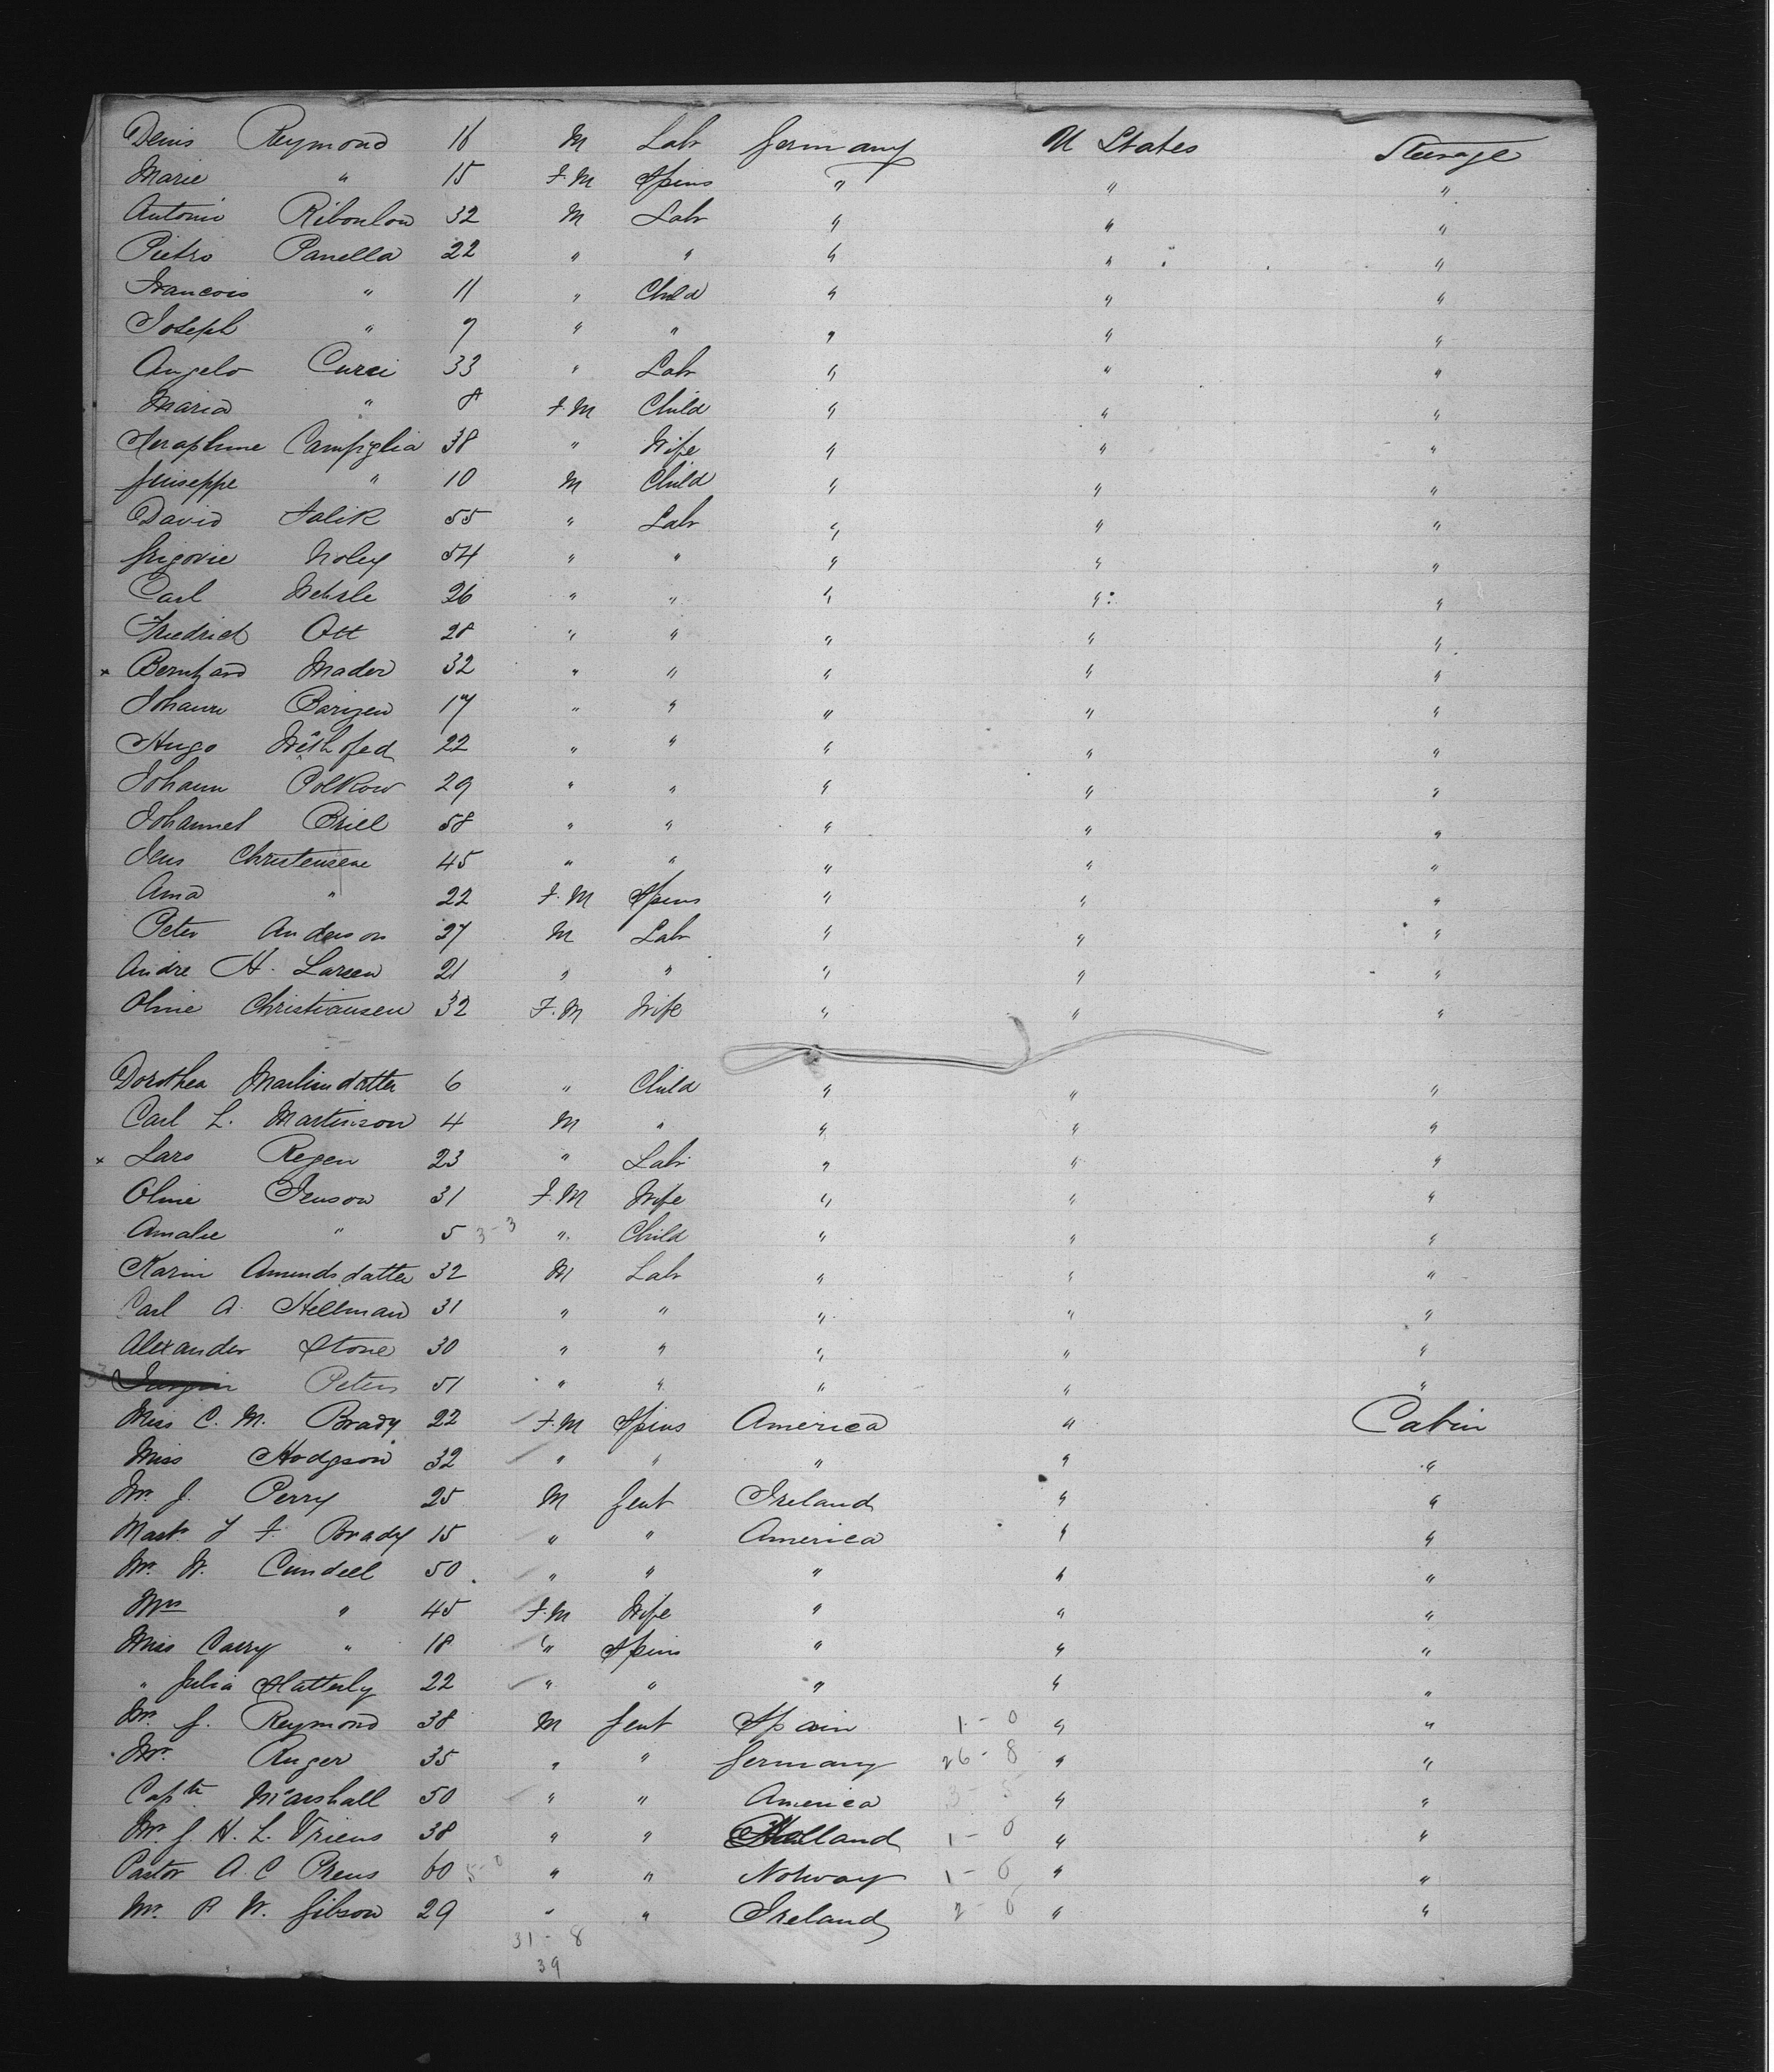 Denis Reymond 16 M Labr Germany U States Steerage
Marie " 15 F.M Spins " " "
Antonio Riboulon 32 M Labr " " "
Pietro Panella 22 " " " " "
Francois " 11 " Child " " "
Joseph " 7 " " " " "
Angelo Curci 33 " Labr " " "
Maria " 8 F.M Child " " "
Seraphine Campiglia 38 " Wife " " "
Giuseppe " 10 M Child " " "
David Falik 55 " Labr " " "
Grigorie Noley 54 " " " " "
Carl Wehrle 26 " " " " "
Friedrich Ott 28 " " " " "
x Bernhard Mader 32 " " " " "
Johann Barizen 17 " " " " "
Hugo 22 " " " " "
Johann Polkow 29 " " " " "
Johannes Briel 58 " " " " "
Jens Christensen 45 " " " " "
Ana " 22 F.M Spins " " "
Peter Anderson 27 M Labr " " "
Andre H. Larsen 21 " " " " "
Oline Christiansen 32 F.M Wife " " "
Dorothea Martinsdatter 6 " Child " " "
Carl L. Martinson 4 M " " " "
x Lars Regen 23 " Labr " " "
Oline Jenson 31 F.M Wife " " "
Amalie " 5 3-3 " Child " " "
Karin Amundsdatter 32 M Labr " " "
Carl A. Hellman 31 " " " " "
Alexander Stone 30 " " " " "
Peters 51 " " " " "
Miss C. M. Brady 22 F.M Spins America " Cabin
Miss Hodgson 32 " " " " "
Mr. J. Perry 25 M Gent Ireland " "
Mastr J F. Brady 15 " " America " "
Mr. W. Cundell 50 " " " " "
Mrs " 45 F.M Wife " " "
Miss Carry " 18 " Spins " " "
" Julia Slatterly 22 " " " " "
Mr. J. Reymond 38 M Gent Spain 1-0 " "
Mr. Ruger 35 " " Germany 26-8 " "
Captn Marshall 50 " " America 3-5 " "
Mr. J. H. L. Vriens 38 " " Holland 1-0 " "
Pastor A. C Preus 60 5-0 " " Norway 1-0 " "
Mr. R W. Gibson 29 " " Ireland 2-0 " "
31-8
39